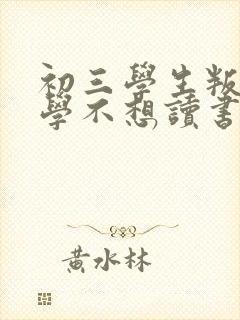 初三學生叛
學不想讀書
黃水林